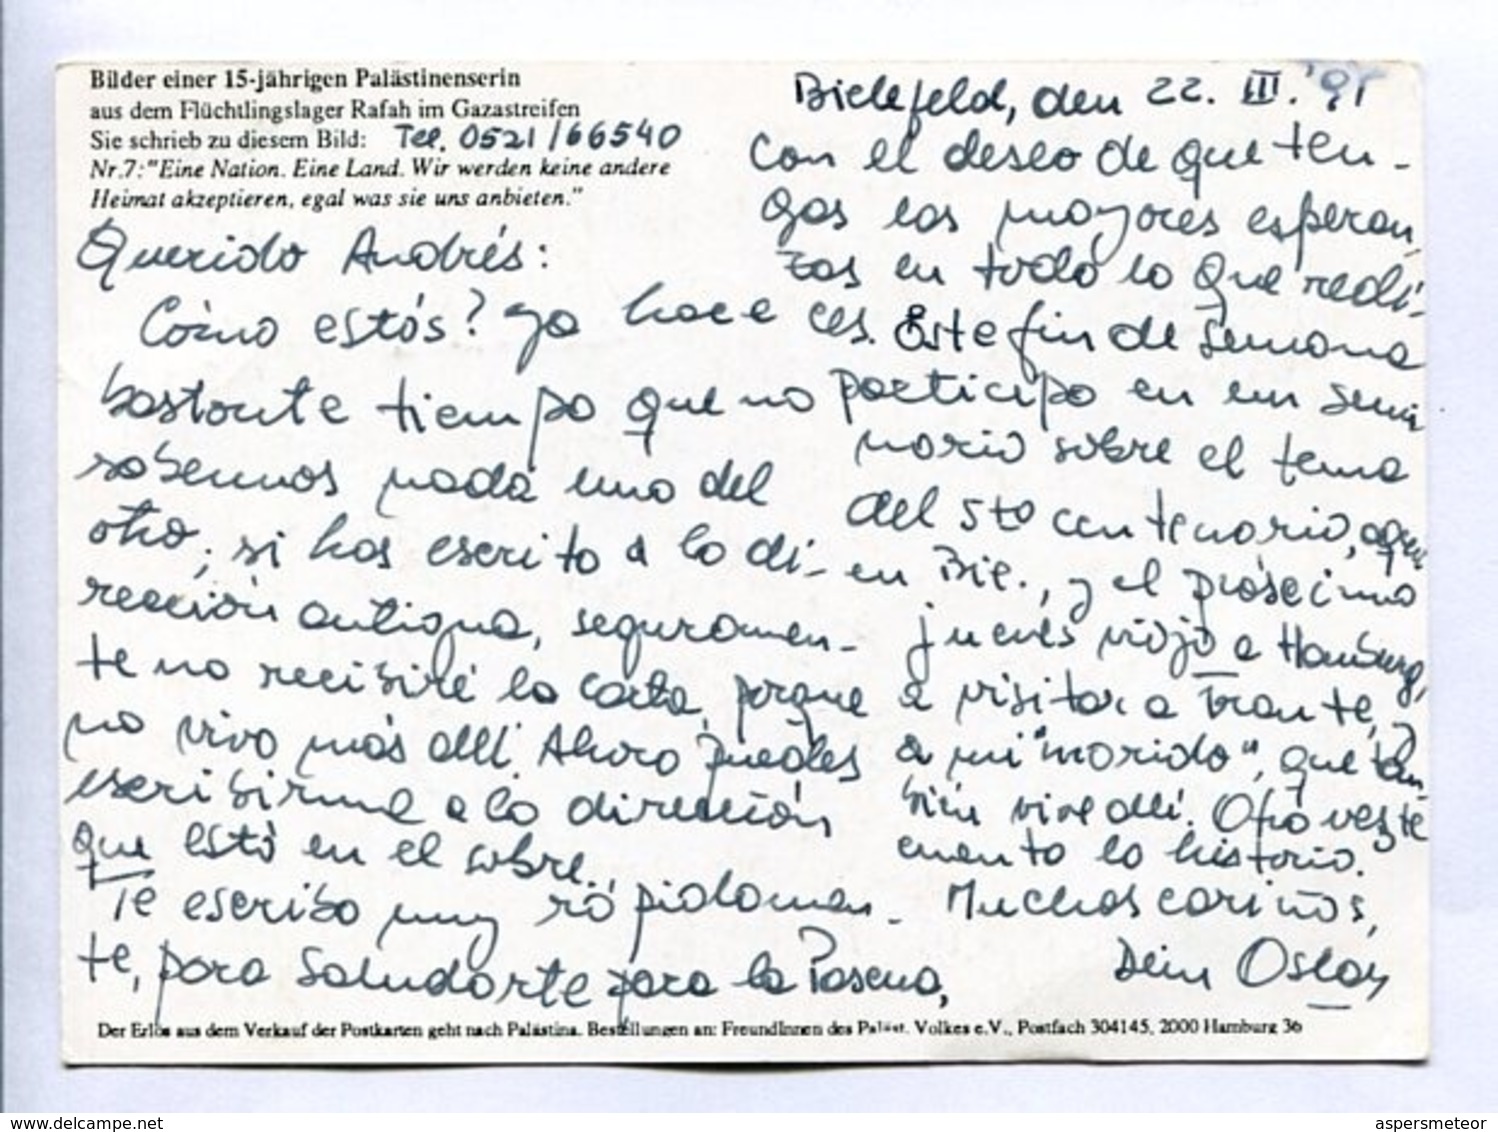 Bilder einer 15-jährigen Palästinenserin
aus dem Flüchtlingslager Rafah im Gazastreifen
Sie schrieb zu diesem Bild: Tel. 0521/66540
Nr.7:"Eine Nation. Eine Land. Wir werden keine andere
Heimat akzeptieren, egal was sie uns anbieten."
Querido Andrés:
Cómo estás? Ya hace
bastante tiempo que no
sabemos nada uno del
otro, si has escrito a la di-
rección antigua, seguramen-
te no recibiré la carta, porque
no vivo más allí. Ahora puedes
escribirme a la dirección
que está en el sobre.
Te escribo muy rápidamen-
te, para saludarte para la Pascua,
Bielefeld, den 22. III. '91
con el deseo de que ten-
gas las mayores esperan-
zas en todo lo que reali-
ces. Este fin de semana
participo en un semi
nario sobre el tema
del 5to centenario, aquí
en Bie., y el próscimo
jueves viajo a Hamburg,
a visitar a Trante, y
a mi "marido", que tam
bién vive allí. Otra vez te
cuento la historia.
Muchos cariños,
Dein Oscar
Der Erlös aus dem Verkauf der Postkarten geht nach Palästina. Bestellungen an: FreundInnen des Paläst. Volkes e.V., Postfach 304145, 2000 Hamburg 36
www.delcampe.net
aspersmeteor